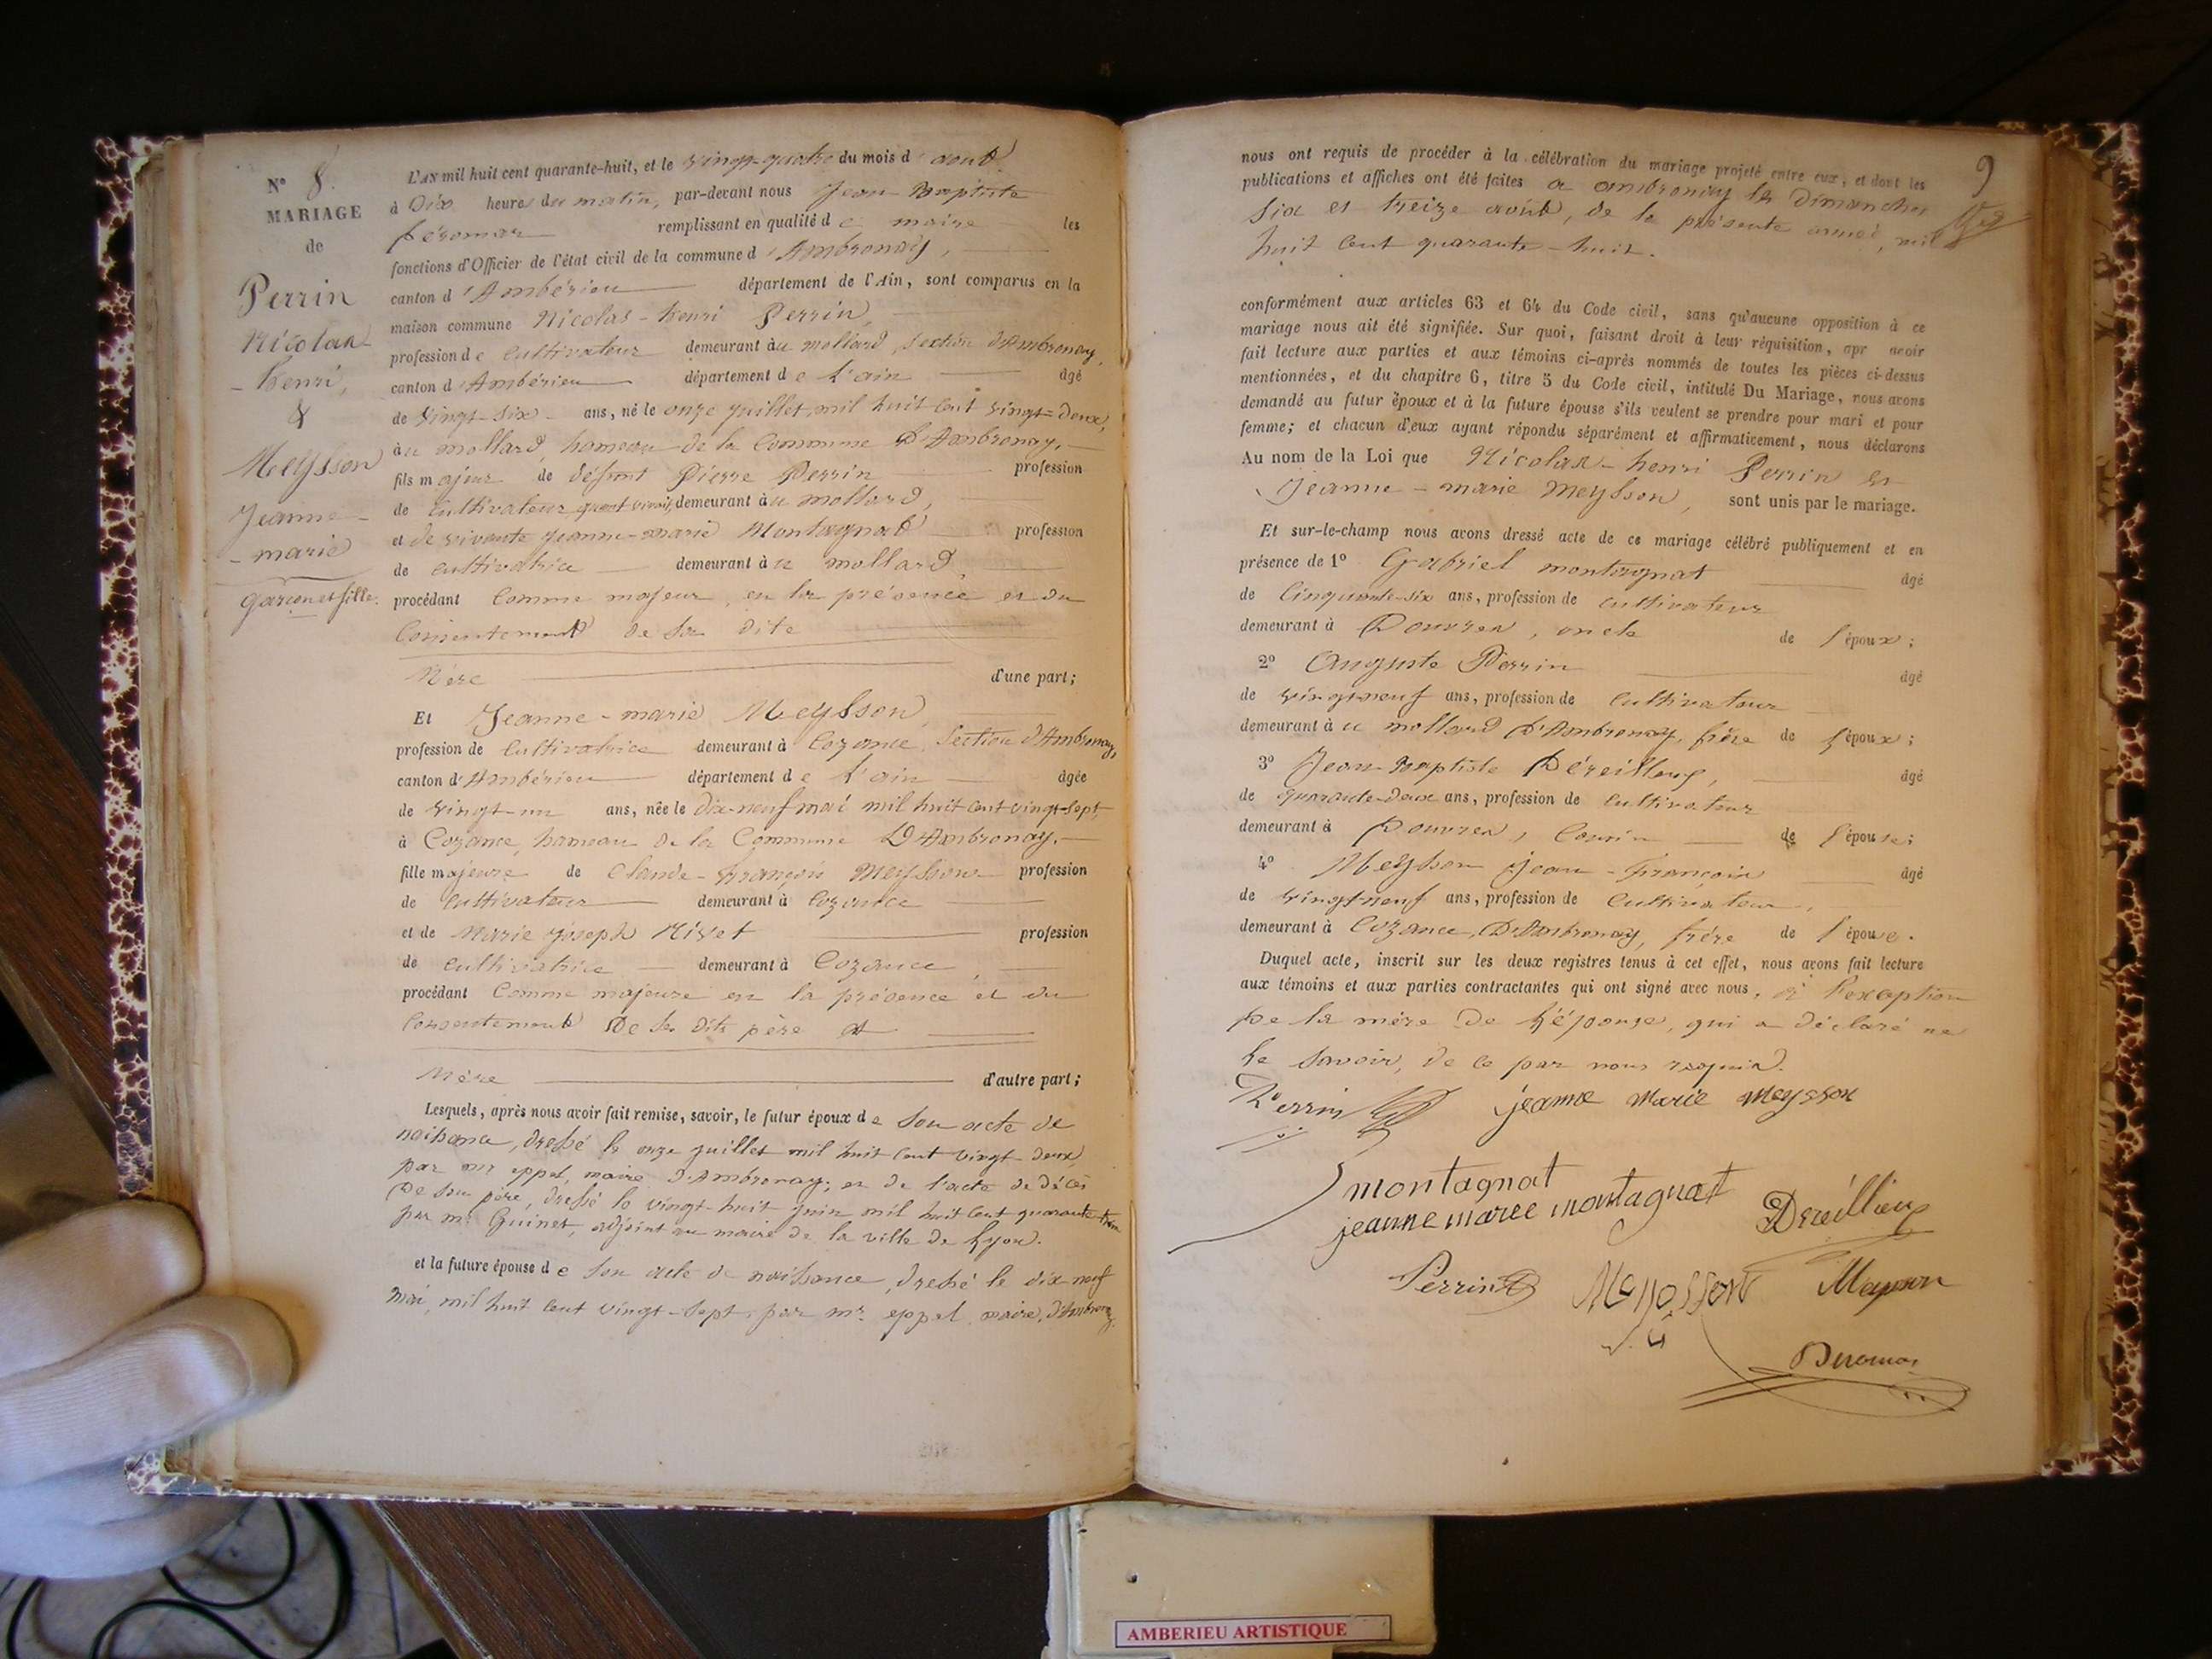 N° 8.
MARIAGE
de
Perrin
Nicolas
- henri,
&
Meysson
Jeanne -
- marie
garçon et fille.
L'AN mil huit cent quarante-huit, et le vingt-quatre du mois d'aout
à Dix heures du matin, par-devant nous Jean-Baptiste
remplissant en qualité de maire les
fonctions d'Officier de l'état civil de la commune d'Ambronay,
canton d'Ambérieu département de l'Ain, sont comparus en la
maison commune Nicolas-henri Perrin,
profession de cultivateur demeurant au mollard, section d'Ambronay,
canton d'Ambérieu département de l'ain âgé
de vingt-six ans, né le onze juillet mil huit cent vingt-deux,
au mollard, hameau de la Commune D'Ambronay,
fils majeur de défunt Pierre Perrin profession
de cultivateur quant vivait, demeurant au mollard,
et de vivante jeanne-marie Montagnat profession
de cultivatrice demeurant au mollard,
procédant Comme majeur, en la présence et du
Consentement de sa dite
Mère d'une part;
Et Jeanne-marie Meysson,
profession de Cultivatrice demeurant à Cozance, Section d'Ambronay,
canton d'Ambérieu département de l'ain âgée
de vingt-un ans, née le dix-neuf mai mil huit cent vingt-sept,
à Cozance, hameau de la Commune D'Ambronay,
fille majeure de Claude-françois Meysson profession
de cultivateur demeurant à Cozance
et de Marie joseph Nivet profession
de cultivatrice demeurant à Cozance,
procédant Comme majeure en la présence et du
Consentement De ses dits père et
Mère d'autre part;
Lesquels, après nous avoir fait remise, savoir, le futur époux de Son acte de
naissance, dressé le onze juillet mil huit cent vingt-deux,
par mr eppel, maire d'Ambronay; et de l'acte de décès
De son père, dressé le vingt-huit juin mil huit cent quarante-trois
par mr Guinet, adjoint au maire de la ville de Lyon.
et la future épouse de Son acte de naissance, dressé le dix-neuf
mai, mil huit cent vingt-sept, par mr. eppel, maire, d'Ambronay.
9
nous ont requis de procéder à la célébration du mariage projeté entre eux, et dont les
publications et affiches ont été faites a ambronay les dimanches
Six et treize août, de la présente année, mil
huit cent quarante-huit.
conformément aux articles 63 et 64 du Code civil, sans qu'aucune opposition à ce
mariage nous ait été signifiée. Sur quoi, faisant droit à leur réquisition, apr avoir
fait lecture aux parties et aux témoins ci-après nommés de toutes les pièces ci-dessus
mentionnées, et du chapitre 6, titre 5 du Code civil, intitulé Du Mariage, nous avons
demandé au futur époux et à la future épouse s'ils veulent se prendre pour mari et pour
femme; et chacun d'eux ayant répondu séparément et affirmativement, nous déclarons
Au nom de la Loi que Nicolas-henri Perrin et
Jeanne-marie Meysson, sont unis par le mariage.
Et sur-le-champ nous avons dressé acte de ce mariage célébré publiquement et en
présence de 1° Gabriel montagnat âgé
de Cinquante-six ans, profession de cultivateur
demeurant à Douvres, oncle de l'époux;
2° Auguste Perrin âgé
de vingt-neuf ans, profession de Cultivateur
demeurant au mollard D'Ambronay, frère de l'époux;
3° Jean-Baptiste Déreilleux, âgé
de quarante-deux ans, profession de Cultivateur
demeurant à Douvres, Cousin de l'épouse;
4° Meysson Jean-François âgé
de vingt-neuf ans, profession de Cultivateur,
demeurant à Cozance, D'Ambronay, frère de l'épouse.
Duquel acte, inscrit sur les deux registres tenus à cet effet, nous avons fait lecture
aux témoins et aux parties contractantes qui ont signé avec nous, à l'exception
De la mère De L'épouse, qui a déclaré ne
le Savoir, de ce par nous requis.
Perrin jeanne Marie Meysson
montagnat
jeanne marie montagnat Dereillieux
Perrin Meysson Meysson
AMBERIEU ARTISTIQUE